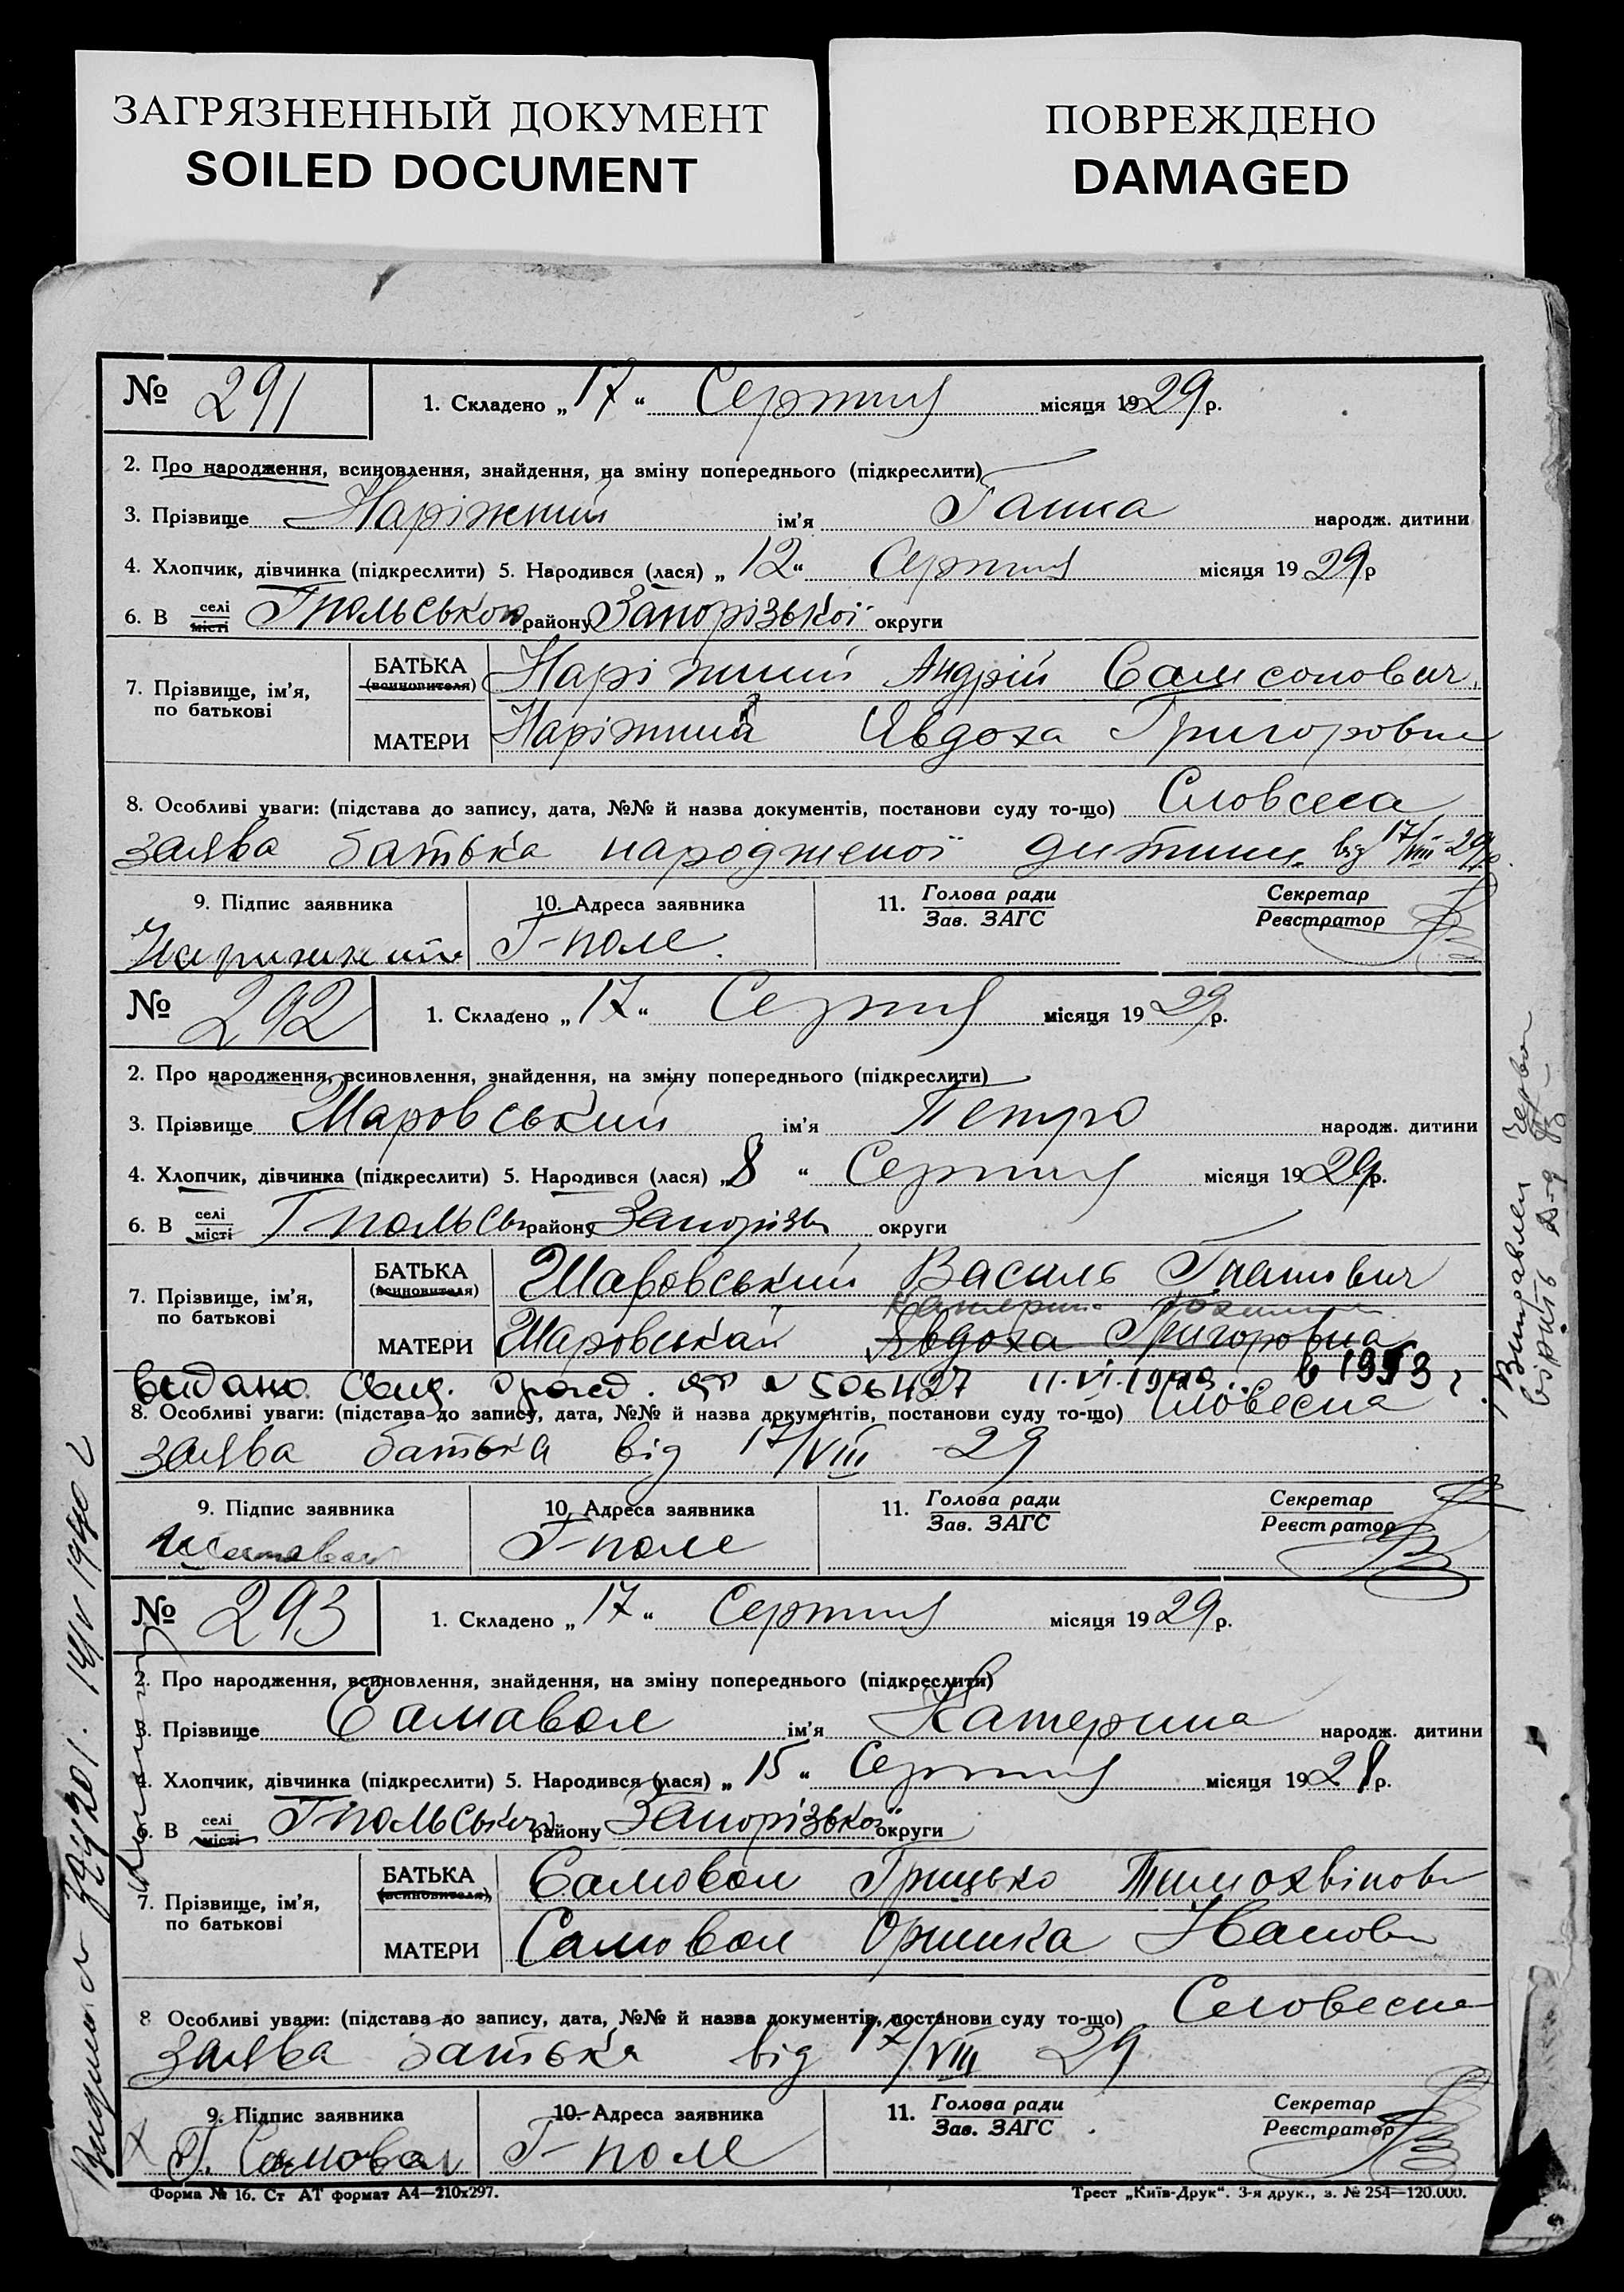 ЗАГРЯЗНЕННЫЙ ДОКУМЕНТ
SOILED DOCUMENT
ПОВРЕЖДЕНО
DAMAGED
№ 291
1. Складено „17“ Серпня місяця 1929 р.
2. Про народження, всиновлення, знайдення, на зміну попереднього (підкреслити)
3. Прізвище Наріжний ім'я Ганна народж. дитини
4. Хлопчик, дівчинка (підкреслити) 5. Народився (лася) „12“ Серпня місяця 1929 р
6. В селі місті Гпольського району Запорізької округи
7. Прізвище, ім'я, по батькові
БАТЬКА (всиновителя) Наріжний Андрій Самсонович
МАТЕРИ Наріжна Явдоха Григоровна
8. Особливі уваги: (підстава до запису, дата, №№ й назва документів, постанови суду то-що) Словесна
заява батька народженої дитини від 17/VIII-29 р.
9. Підпис заявника
10. Адреса заявника
11. Голова ради Зав. ЗАГС
Секретар Реєстратор
Г-поле.
№ 292
1. Складено „17“ Серпня місяця 1929 р.
2. Про народження, всиновлення, знайдення, на зміну попереднього (підкреслити)
3. Прізвище Шаровський ім'я Петро народж. дитини
4. Хлопчик, дівчинка (підкреслити) 5. Народився (лася) „8“ Серпня місяця 1929 р.
6. В селі місті Гпольськ району Запорізьк округи
7. Прізвище, ім'я, по батькові
БАТЬКА (всиновителя) Шаровський Василь Гнатович
Катерина
МАТЕРИ Шаровська Явдоха Григоровна
видано свид. № 506427 11.VI. в 1953 г
8. Особливі уваги: (підстава до запису, дата, №№ й назва документів, постанови суду то-що) Словесна
заява батька від 17/VIII 29
9. Підпис заявника
10. Адреса заявника
11. Голова ради Зав. ЗАГС
Секретар Реєстратор
Г-поле
Виправлен вірить
№ 293
1. Складено „17“ Серпня місяця 1929 р.
2. Про народження, всиновлення, знайдення, на зміну попереднього (підкреслити)
3. Прізвище Самавол ім'я Катерина народж. дитини
4. Хлопчик, дівчинка (підкреслити) 5. Народився (лася) „15“ Серпня місяця 1929 р.
6. В селі місті Гпольського району Запорізької округи
7. Прізвище, ім'я, по батькові
БАТЬКА (всиновителя) Самовол Грицько Тимохвінов
МАТЕРИ Самовол Оришка Іванов
8 Особливі уваги: (підстава до запису, дата, №№ й назва документів, постанови суду то-що) Словесна
заява батька від 17/VIII 29
9. Підпис заявника
10. Адреса заявника
11. Голова ради Зав. ЗАГС
Секретар Реєстратор
Г. Самовол
Г-поле
Форма № 16. Ст АТ формат А4—210х297.
Трест „Київ-Друк“. 3-я друк., з. № 254—120.000.